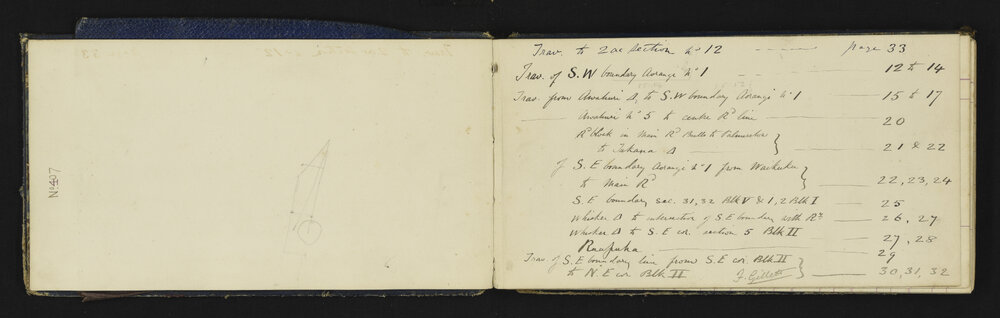 No 407
Trav. to 20 ac section No 12 page 33
Trav. of S.W boundary Aorangi No 1 12 to 14
Trav. from Awahuri Δ to S.W boundary Aorangi No 1 15 to 17
Awahuri No 5 to centre Rd line 20
Rd block in Main Rd Bulls to Palmerston
to Takana Δ 21 & 22
of S.E boundary Aorangi No 1 from
to Main Rd 22, 23, 24
S.E boundary sec. 31, 32 Blk V & 1, 2 Blk I 25
Whisker Δ to intersection of S E boundary with Rd 26, 27
Whisker Δ to S.E cor. section 5 Blk II 27, 28
Ruapuka 29
Trav. of S.E boundary line from S.E cor. Blk II
to N.E cor Blk II J. Gillett 30, 31, 32